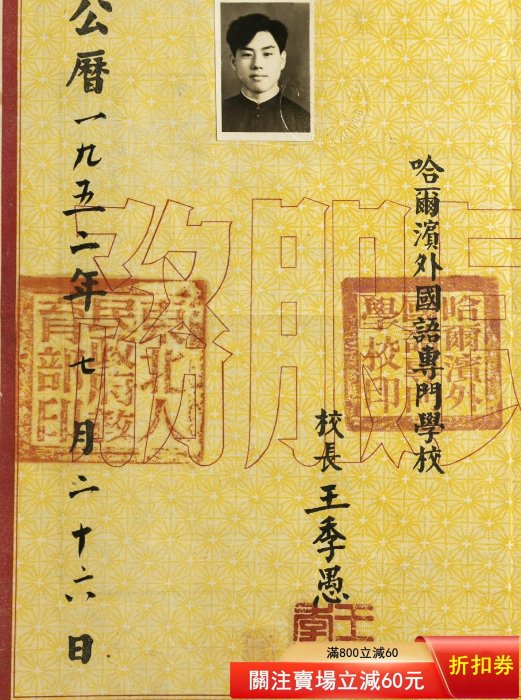 哈爾濱外國語專門學校
校長 王季愚
公曆一九五二年七月二十六日
哈爾濱外
學校印
東北人
民政府教
育部印
服務
滿800立減60
關注賣場立減60元
折扣券